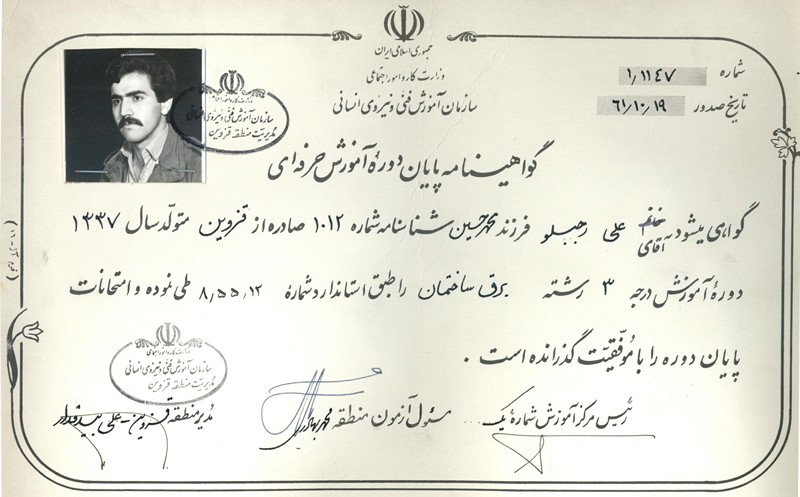 جمهوری اسلامی ایران
وزارت کار و امور اجتماعی
سازمان آموزش فنی و نیروی انسانی
شماره ۱٫۱۱۴۷
تاریخ صدور ۶۱٫۱۰٫۱۹
وزارت کار و امور اجتماعی
سازمان آموزش فنی و نیروی انسانی
مدیریت منطقه قزوین
گواهینامه پایان دوره آموزش حرفه‌ای
گواهی میشود خانم آقای علی رجبلو فرزند محمدحسین شناسنامه شماره ۱۰۱۲ صادره از قزوین متولد سال ۱۳۳۷
دوره آموزش درجه ۳ رشته برق ساختمان را طبق استاندارد شماره ۸٫۵۵٫۱۲ طی نموده و امتحانات
پایان دوره را با موفقیت گذرانده است .
وزارت کار و امور اجتماعی
سازمان آموزش فنی و نیروی انسانی
مدیریت منطقه قزوین
رئیس مرکز آموزش شماره یک
مسئول آزمون منطقه
مدیر منطقه قزوین - علی